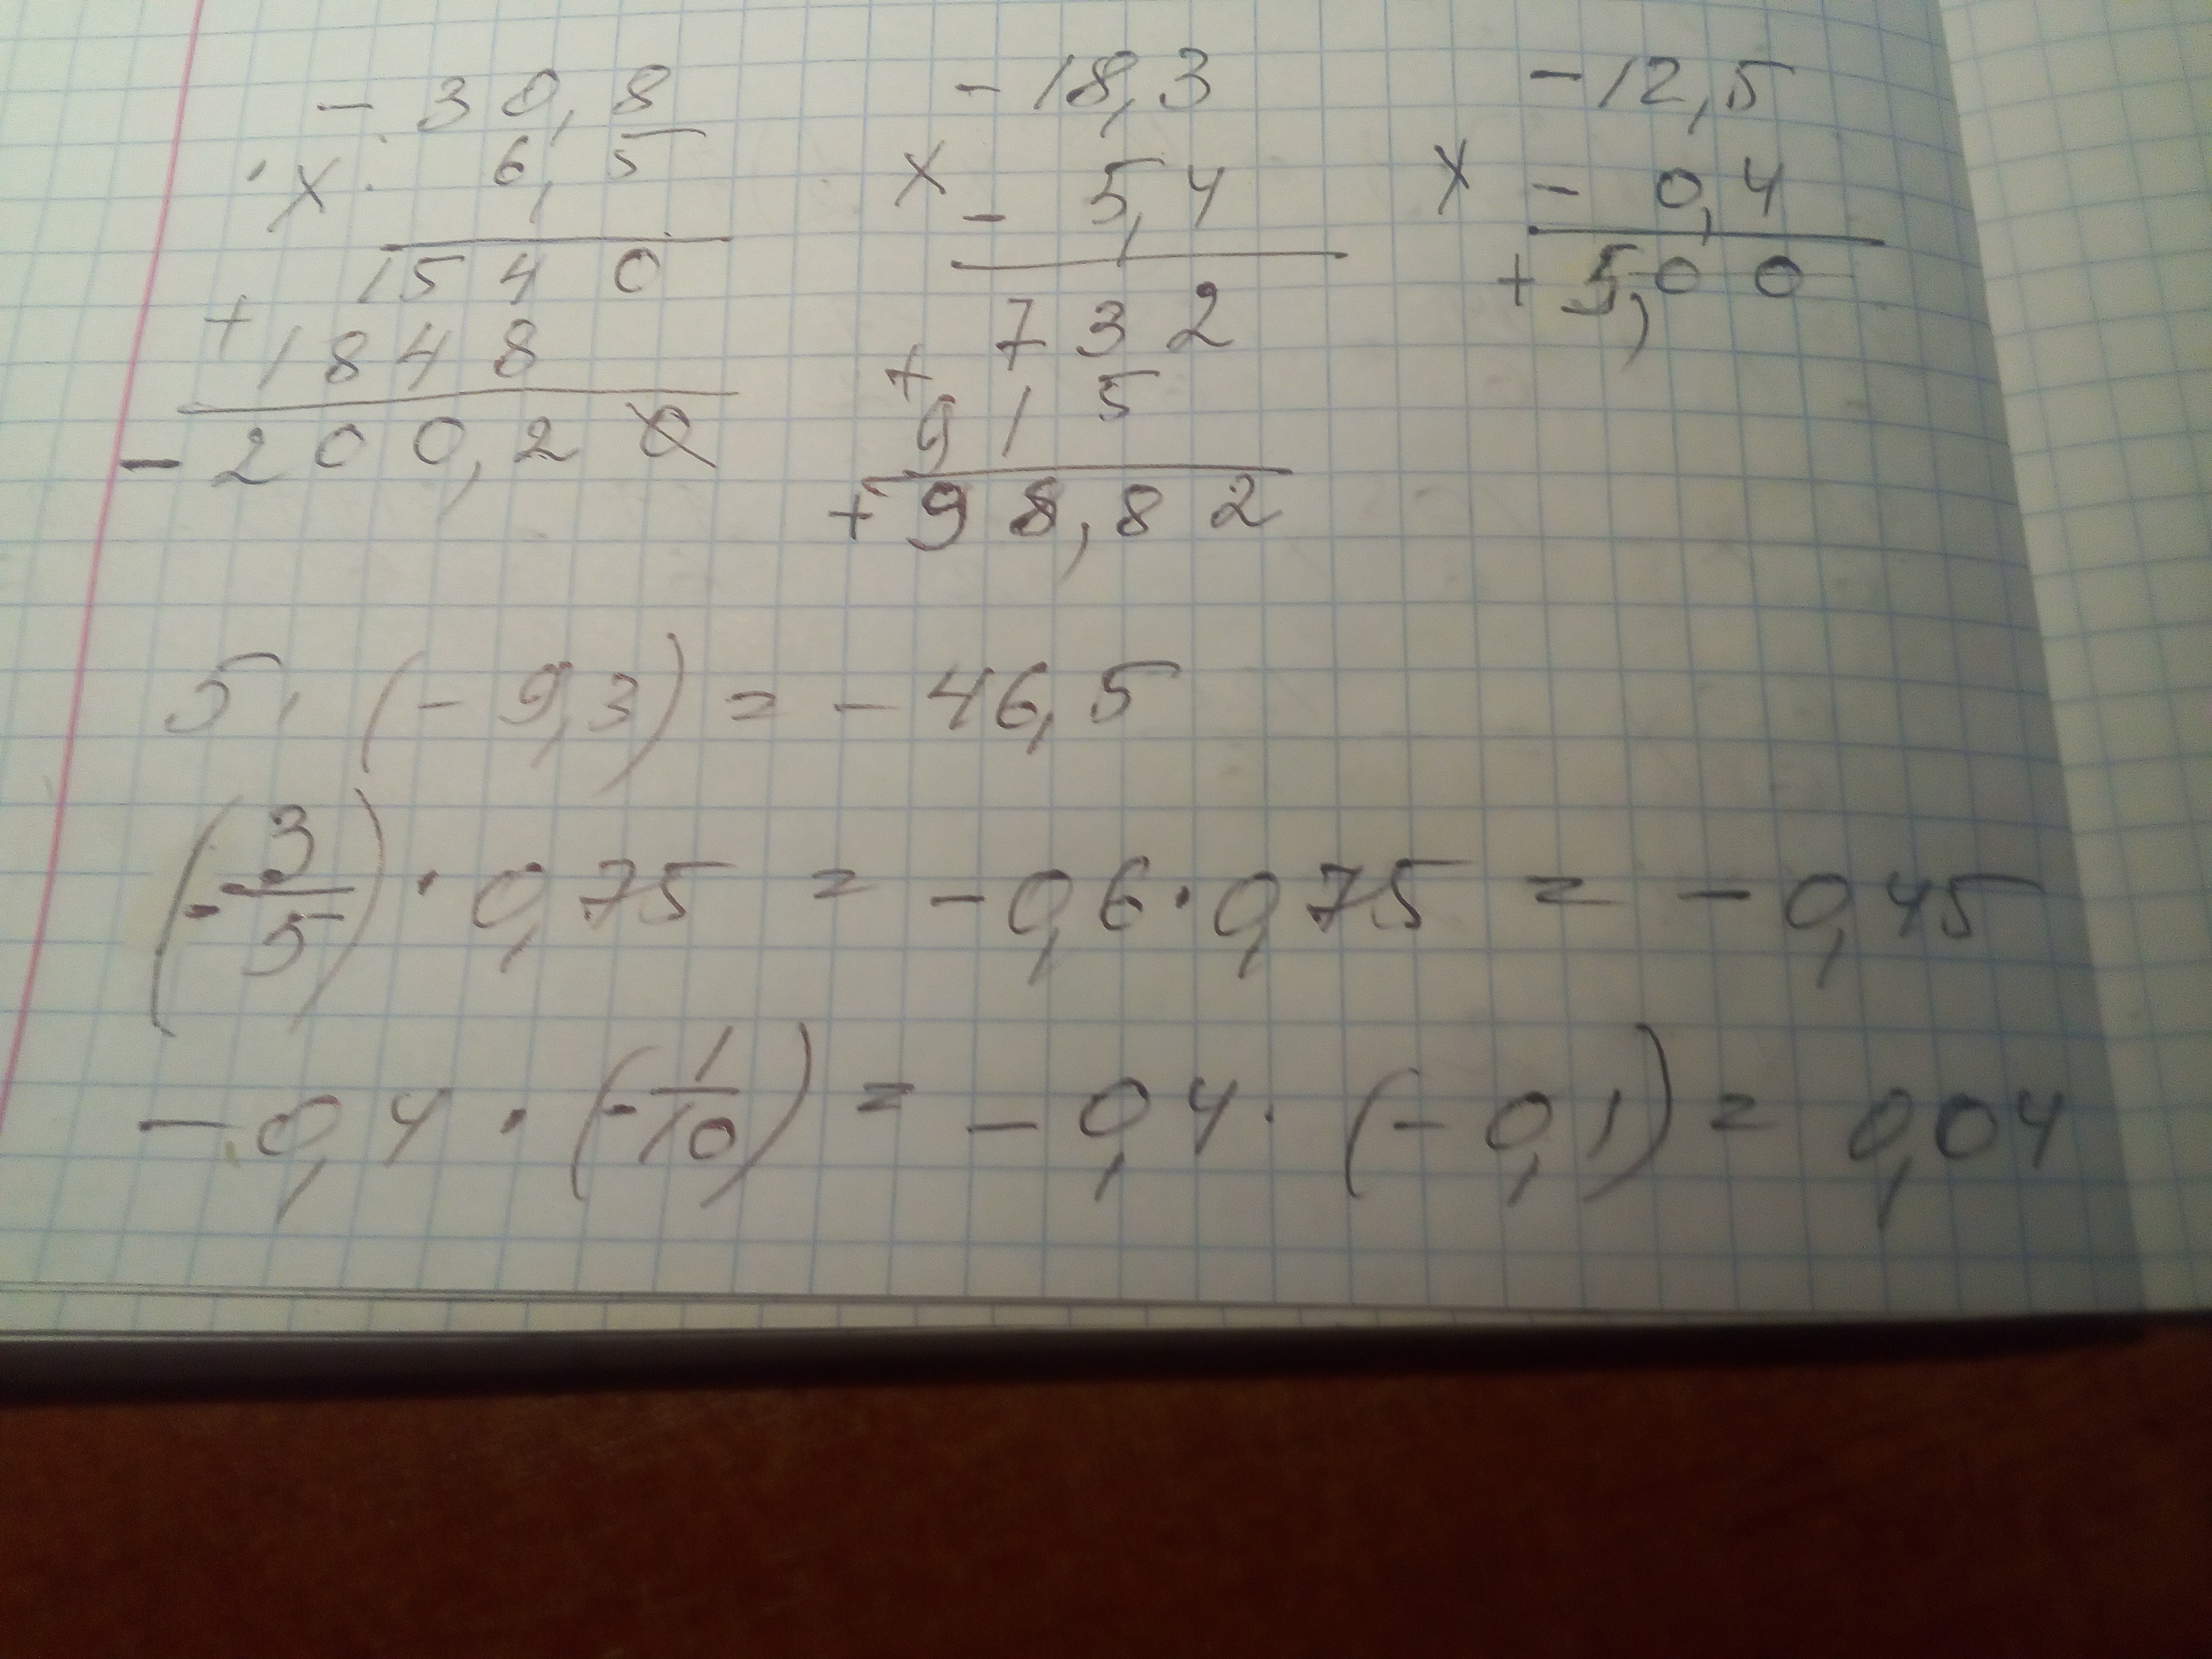 - 30,8
× 6,5
1540
+ 1848
- 200,20
- 18,3
× - 5,4
732
+ 915
+ 98,82
- 12,5
× - 0,4
+ 5,00
5 · (- 9,3) = - 46,5
(- 3/5) · 0,75 = - 0,6 · 0,75 = - 0,45
- 0,4 · (- 1/10) = - 0,4 · (- 0,1) = 0,04